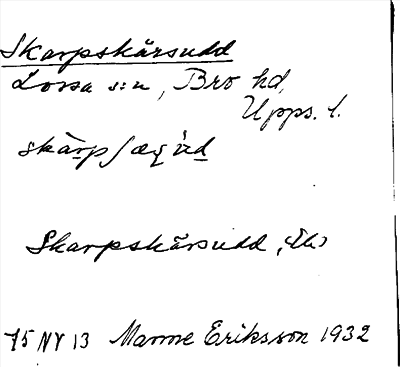 Skarpskärsudd
Lossa s:n, Bro hd,
Upps. l.
Skarpskärsudd,
75 NV 13 Manne Eriksson 1932